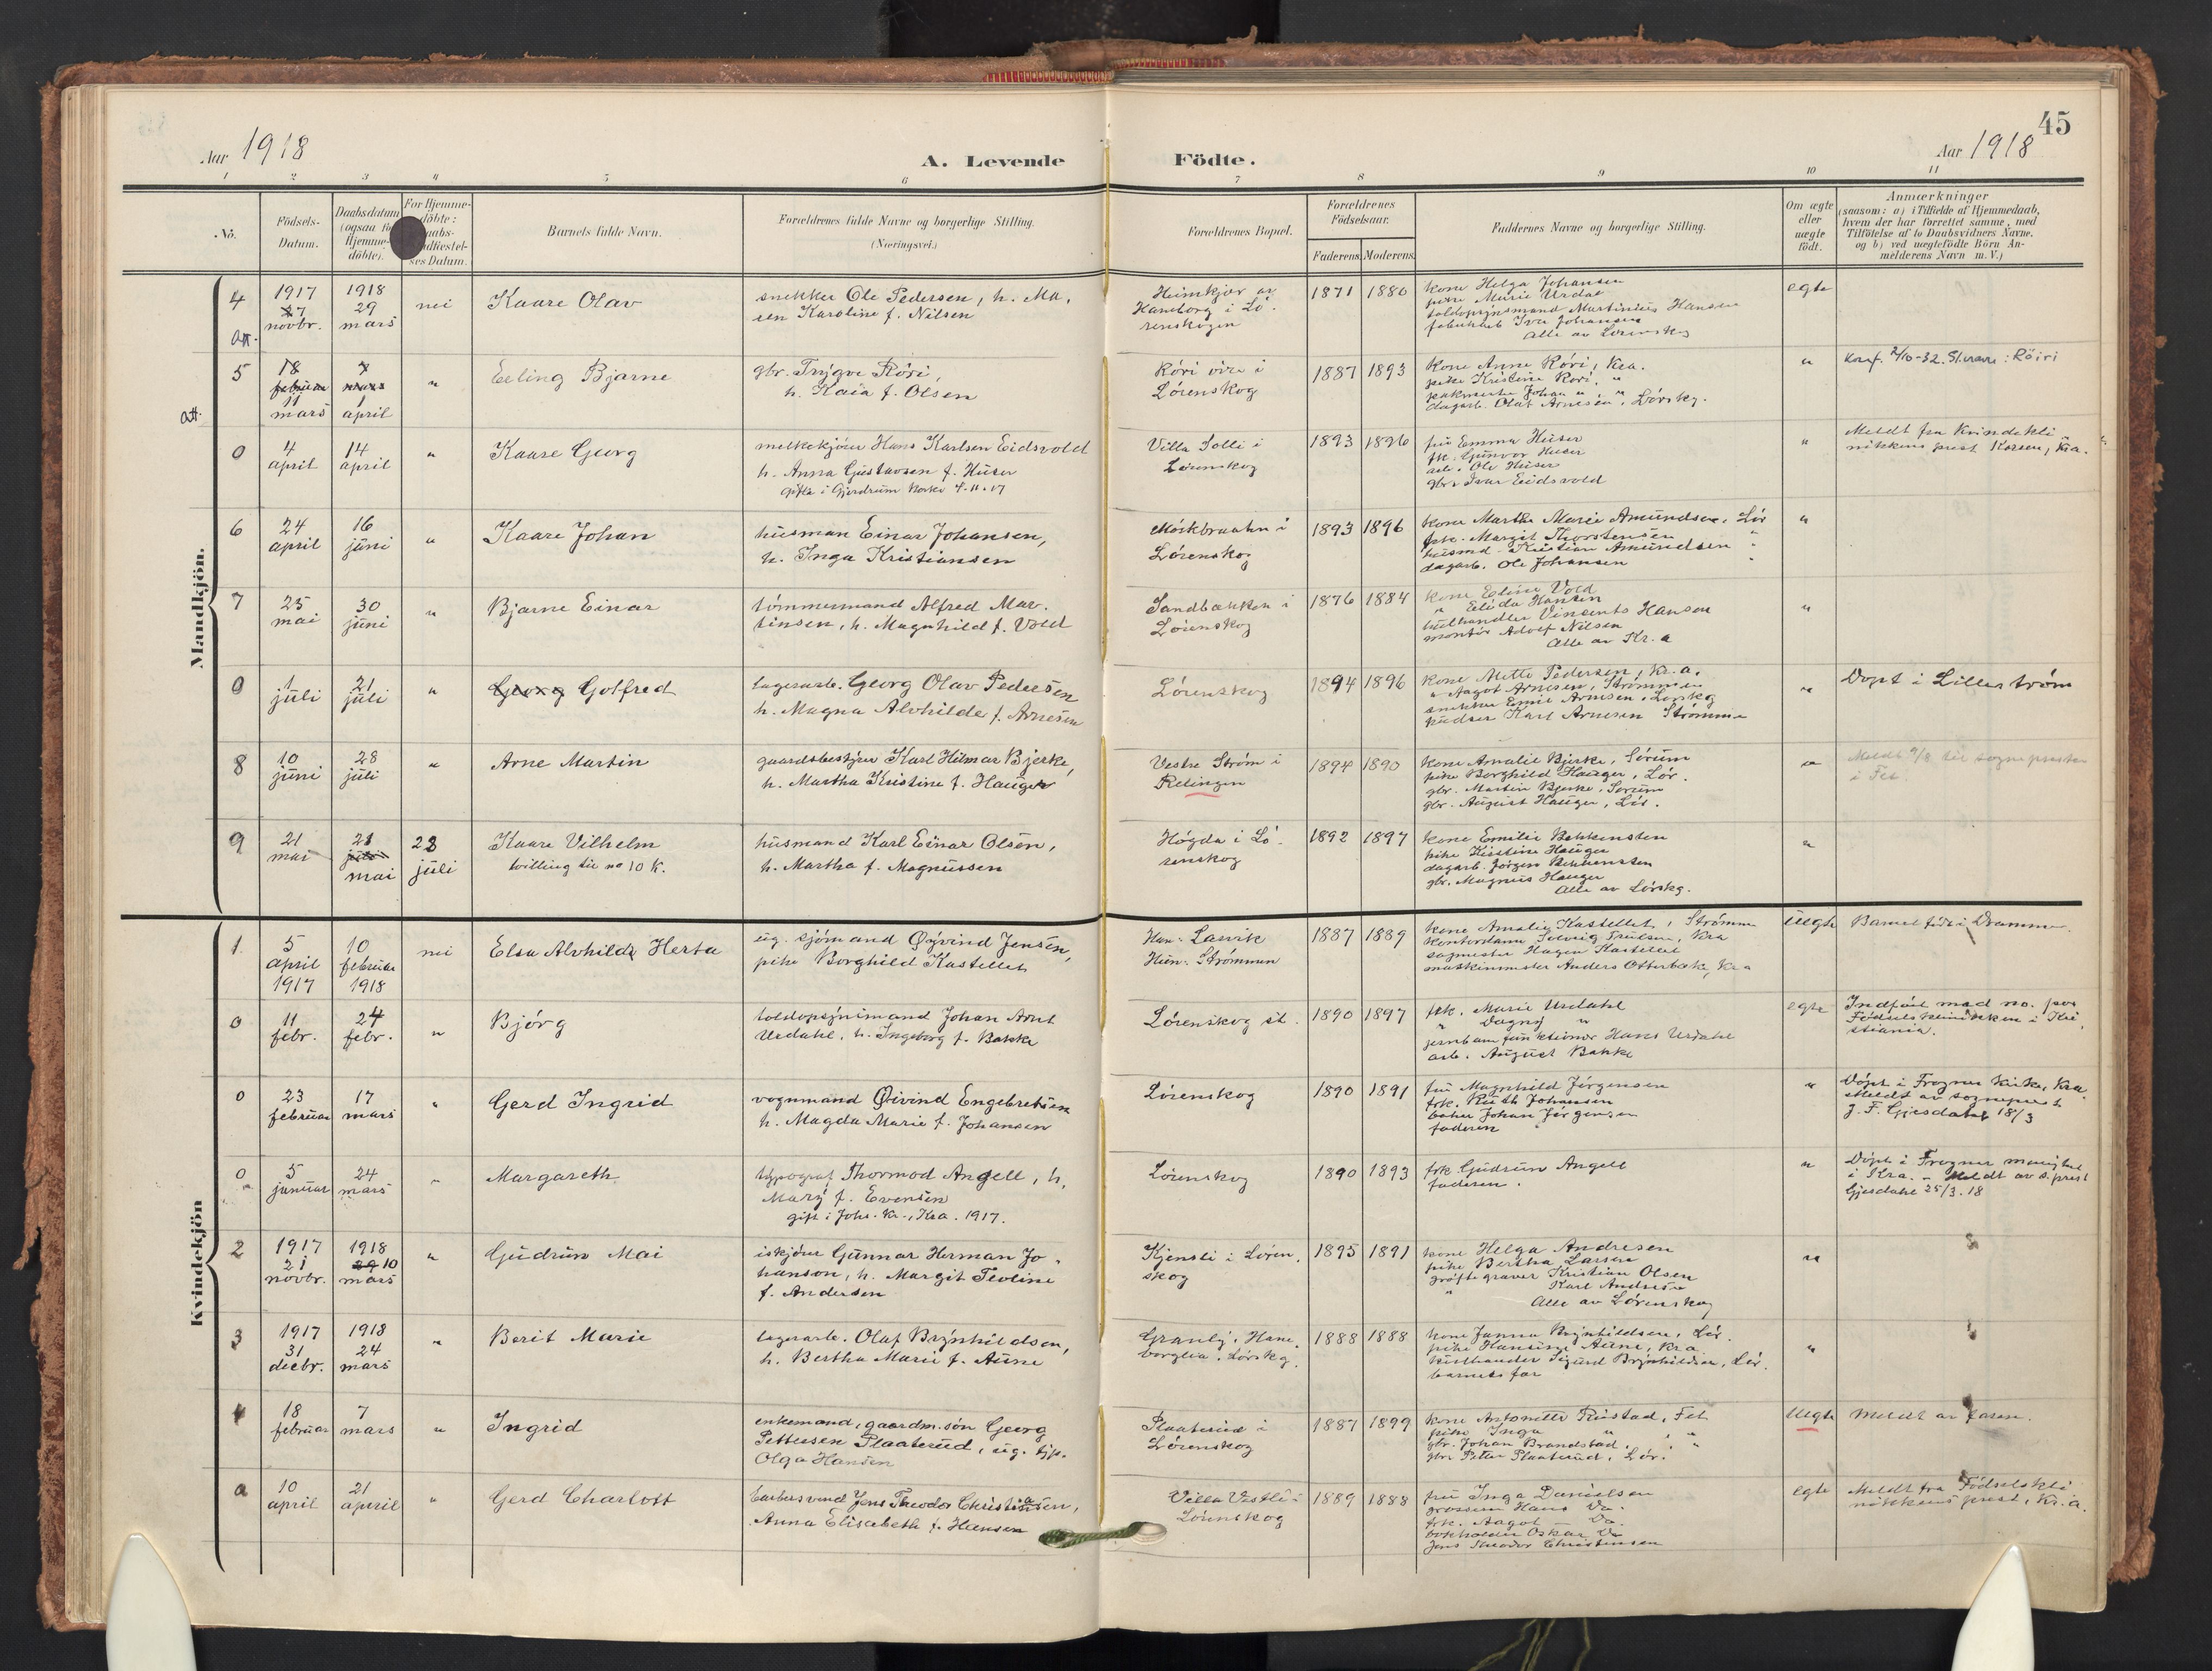 Aar 1918
A. Levende Födte.
Aar 1918
45
1 2 3 4 5 6 7 8 9 10 11
No.
Födsels-
Datum.
Daabsdatum
(ogsaa for
Hjemme-
döbte).
For Hjemme-
döbte:
ses Datum.
Barnets fulde Navn.
Forældrenes fulde Navne og borgerlige Stilling.
(Næringsvei.)
Forældrenes Bopæl.
Forældrenes
Födselsaar.
Faderens. Moderens.
Faddernes Navne og borgerlige Stilling.
Om ægte
eller
uægte
födt.
Anmærkninger
(saasom: a) i Tilfælde af Hjemmedaab,
hvem der har forrettet samme, med
Tilföielse af to Daabsvidners Navne,
og b) ved uægtefödte Börn An-
melderens Navn m. V.)
Mandkjön.
4
1917
27
novbr.
1918
29
mars
nei
Kaare Olav
snekker Ole Pedersen, h. Ma-
ren Karoline f. Nilsen
Heimkjær av
Haneborg i Lö-
renskogen
1871 1880
kone Helga Johansen
pike Marie Urdal
toldopsynsmand Martinius Hansen
fabrikarb Iver Johansen
Alle av Lörenskog
egte
att.
5
18
februar
11
mars
7
mars
1
april
"
Erling Bjarne
gbr. Trygve Röri,
h. Kaia f. Olsen
Röri övre i
Lörenskog
1887 1893
Kone Anne Röri, Kra.
pike Kristine Röri, "
pakmester Johan " , "
dagarb. Olaf Arnesen, Lörskg.
"
Konf. 2/10-32. Skrevne: Röiri
att.
0
4
april
14
april
"
Kaare Georg
melkekjörer Hans Karlsen Eidsvold
h. Anna Gustavsen f. Huser
gifte i Gjerdrum Kirke 4-11-17
Villa Solli i
Lörenskog
1893 1896
fru Emma Huser
frk. Gunvor Huser
arb. Ole Huser
gbr. Ivar Eidsvold
"
Meldt fra Kvindekli-
nikkens prest Korsen, Kra.
6
24
april
16
juni
"
Kaare Johan
husman Einar Johansen,
h. Inga Kristiansen
Mörkbraaten i
Lörenskog
1893 1896
kone Marthe Marie Amundsen, Lör
frk. Margit Thorstensen "
husmd. Kristian Amundsen "
dagarb. Ole Johansen "
"
7
25
mai
30
juni
"
Bjarne Einar
tömmermand Alfred Mar-
tinsen, h. Magnhild f. Vold
Sandbakken i
Lörenskog
1876 1884
kone Eline Vold
" Elida Hansen
kulhandler Vincents Hansen
montör Adolf Nilsen
Alle av Kr.a
"
0
1
juli
21
juli
"
Georg Golfred
lagerarb. Georg Olav Pedersen
h. Magna Alvhilde f. Arnesen
Lörenskog
1894 1896
kone Mette Pedersen, Kr.a.
" Aagot Arnesen, Strömmen
snekker Emil Arnesen, Lörskg
pudser Karl Arnesen Strömmen
"
Döpt i Lilleström
8
10
juni
28
juli
"
Arne Martin
gaardsbestyrer Karl Hilmar Bjerke,
h. Martha Kristine f. Hauger
Vestre Ström i
Relingen
1894 1890
kone Amalie Bjerke, Sörum
pike Borghild Hauger, Lör.
gbr. Martin Bjerke, Sörum
gbr. August Hauger, Lör.
"
Meldt 9/8 til sognepresten
i Fet.
9
21
mai
21
juli
mai
28
juli
Kaare Vilhelm
tvilling til no 10 K.
husmand Karl Einar Olsen,
h. Martha f. Magnussen
Högda i Lö-
renskog
1892 1897
kone Emilie Bekkensten
pike Kristine Hauger
dagarb. Jörgen Bekkensten
gbr. Magnus Hauger
Alle av Lörskg.
"
Kvindekjön
1
5
april
1917
10
februar
1918
nei
Elsa Alvhilde Herta
ug. sjömand Öyvind Jensen,
pike Borghild Kastellet
Han: Larvik
Hun: Strömmen
1887 1889
kone Amalie Kastellet, Strömmen
kontordame Solveig Paulsen, Kra
sagmester Hagen Kastellet
maskinmester Anders Otterbæk, Kra
Uegte
Barnet född i Drammen.
0
11
febr.
24
febr.
"
Bjórg
toldopsynsmand Johan Arnt
Urdahl, h. Ingeborg f. Bakke
Lörenskog st.
1890 1897
frk. Marie Urdahl
" Dagny "
jernbanefunktionær Hans Urdahl
arb. August Bakke
egte
Indfört med no. fra
Födselsklinikken i Kri-
stiania.
0
23
februar
17
mars
"
Gerd Ingrid
vognmand Öivind Engebretsen
h. Magda Marie f. Johansen
Lörenskog
1890 1891
fru Magnhild Jörgensen
frk. Ruth Johansen
baker Johan Jörgensen
faderen
"
Döpt i Frogner kirke, Kra.
Meldt av sogneprest
J. F. Gjesdahl 18/3
0
5
januar
24
mars
"
Margareth
typograf Thormod Angell, h.
Mary f. Evensen
gift i Johs. Kr., Kra. 1917.
Lörenskog
1890 1893
frk. Gudrun Angell
faderen.
"
Döpt i Frogner menighet
i Kra. - Meldt av s.prest
Gjesdahl 25/3.18
2
1917
21
novbr.
1918
29 10
mars
"
Gudrun Mai
iskjörer Gunnar Herman Jo-
hanson, h. Margit Teoline
f. Andersen
Kjenstli i Lören-
skog
1895 1891
kone Helga Andresen
pike Bertha Larsen
gröftegraver Kristian Olsen
" Karl Andresen
Alle av Lörenskog
"
3
1917
31
decbr.
1918
24
mars
"
Berit Marie
lagerarb. Olaf Brynhildsen,
h. Bertha Marie f. Aune
Granly, Hane-
borglia, Lörskg.
1888 1888
kone Janna Brynhildsen, Lör.
pike Hansine Aune, Kra.
kulhandler Sigurd Brynhildsen, Lör.
barnets far
"
4
18
februar
7
mars
"
Ingrid
enkemand, gaardm.sön Georg
Pettersen Plaaterud, ug. tjp.
Olga Hansen
Plaaterud i
Lörenskog
1887 1899
kone Antonette Rustad, Fet
pike Inga " , "
gbr. Johan Brandstad, "
gbr. Petter Plaaterud, Lör.
Uegte
Meldt av faren.
0
10
april
21
april
"
Gerd Charlott
barbersvend Jens Theodor Christiansen,
Anna Elisabeth f. Hansen
Villa Vestli i
Lörenskog
1889 1888
fru Inga Danielsen
grosserer Hans Do.
frk. Aagot — Do.
bokholder Oskar Do
Jens Theodor Christensen
egte
Meldt fra Födselskli-
nikkens prest, Kr.a.